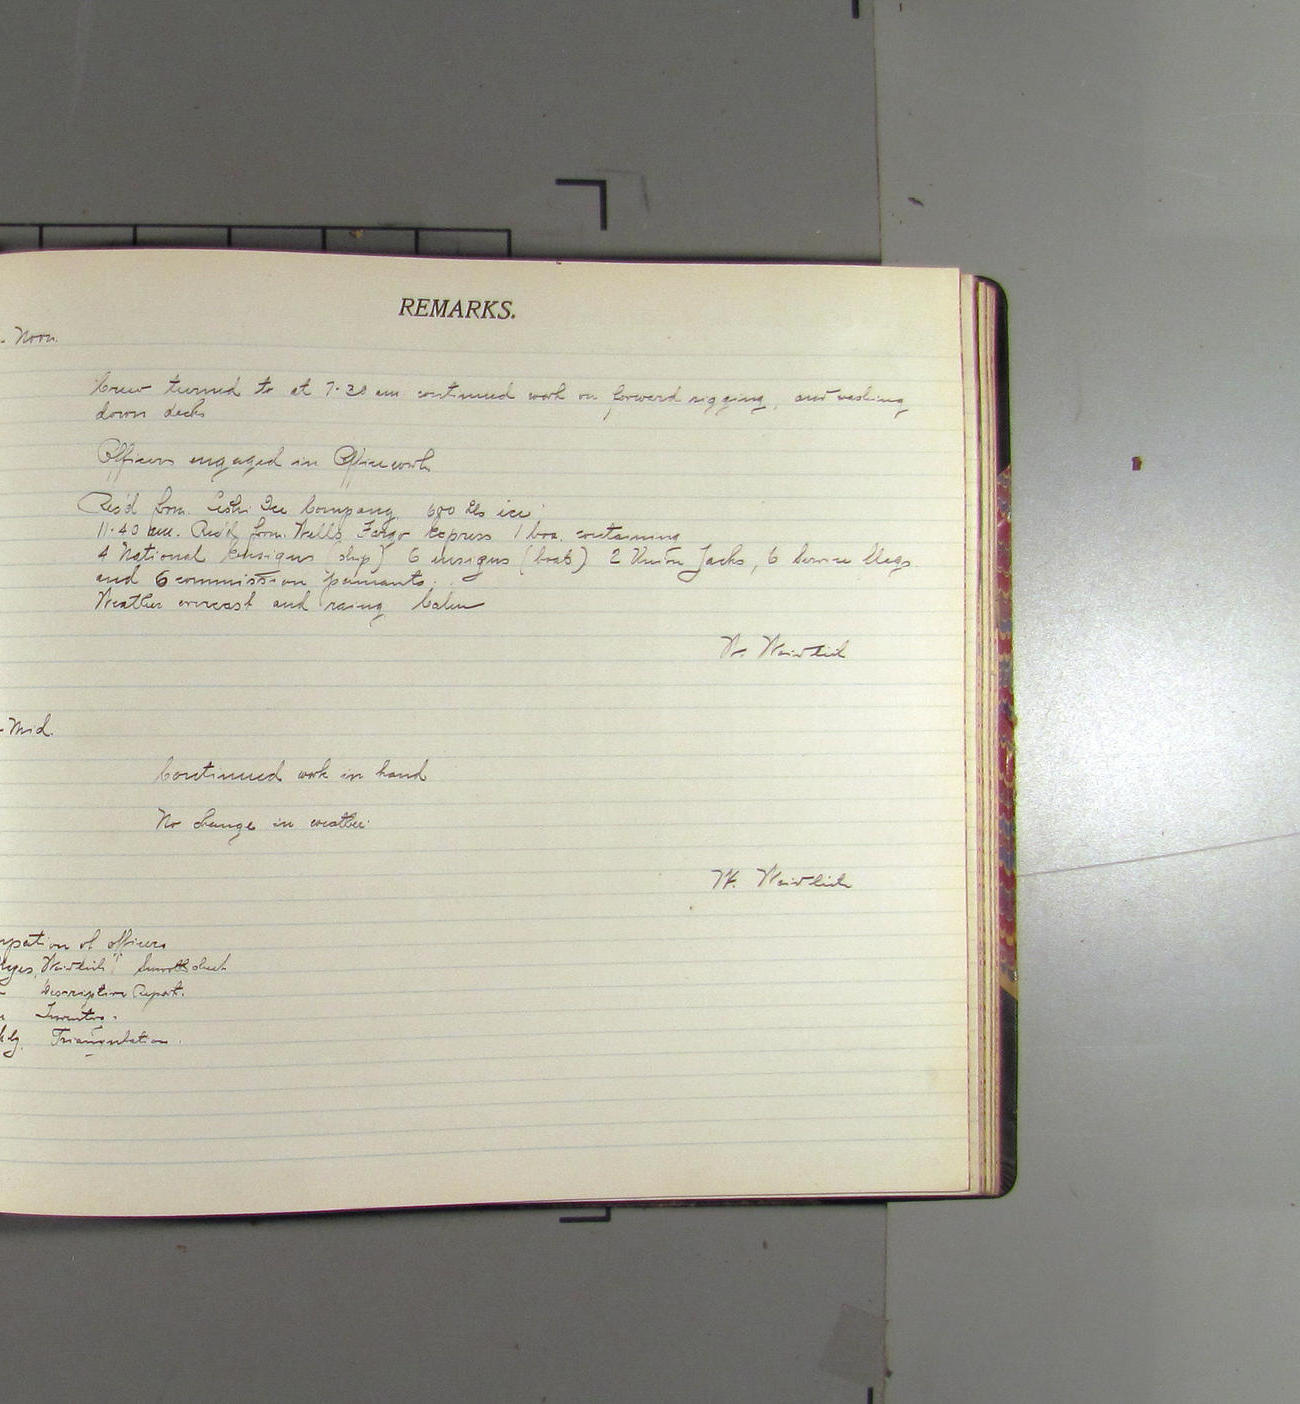 REMARKS.
- Noon.
Crew turned to at 7-30 am continued work on forward rigging, and washing
down decks
Officers engaged in Office work
Rec'd from Ice Company 600 lbs ice
11-40 am. Rec'd from Wells Fargo Express 1 box containing
4 National Ensigns (ship) 6 ensigns (boats) 2 Union Jacks, 6 Service flags
and 6 commission pennants.
Weather overcast and raing Calm
W. Weidlich
- Mid.
Continued work in hand
No change in weather
W. Weidlich
upation of officers
Weidlich Smooth sheet
Descriptive Report.
Triangulation.